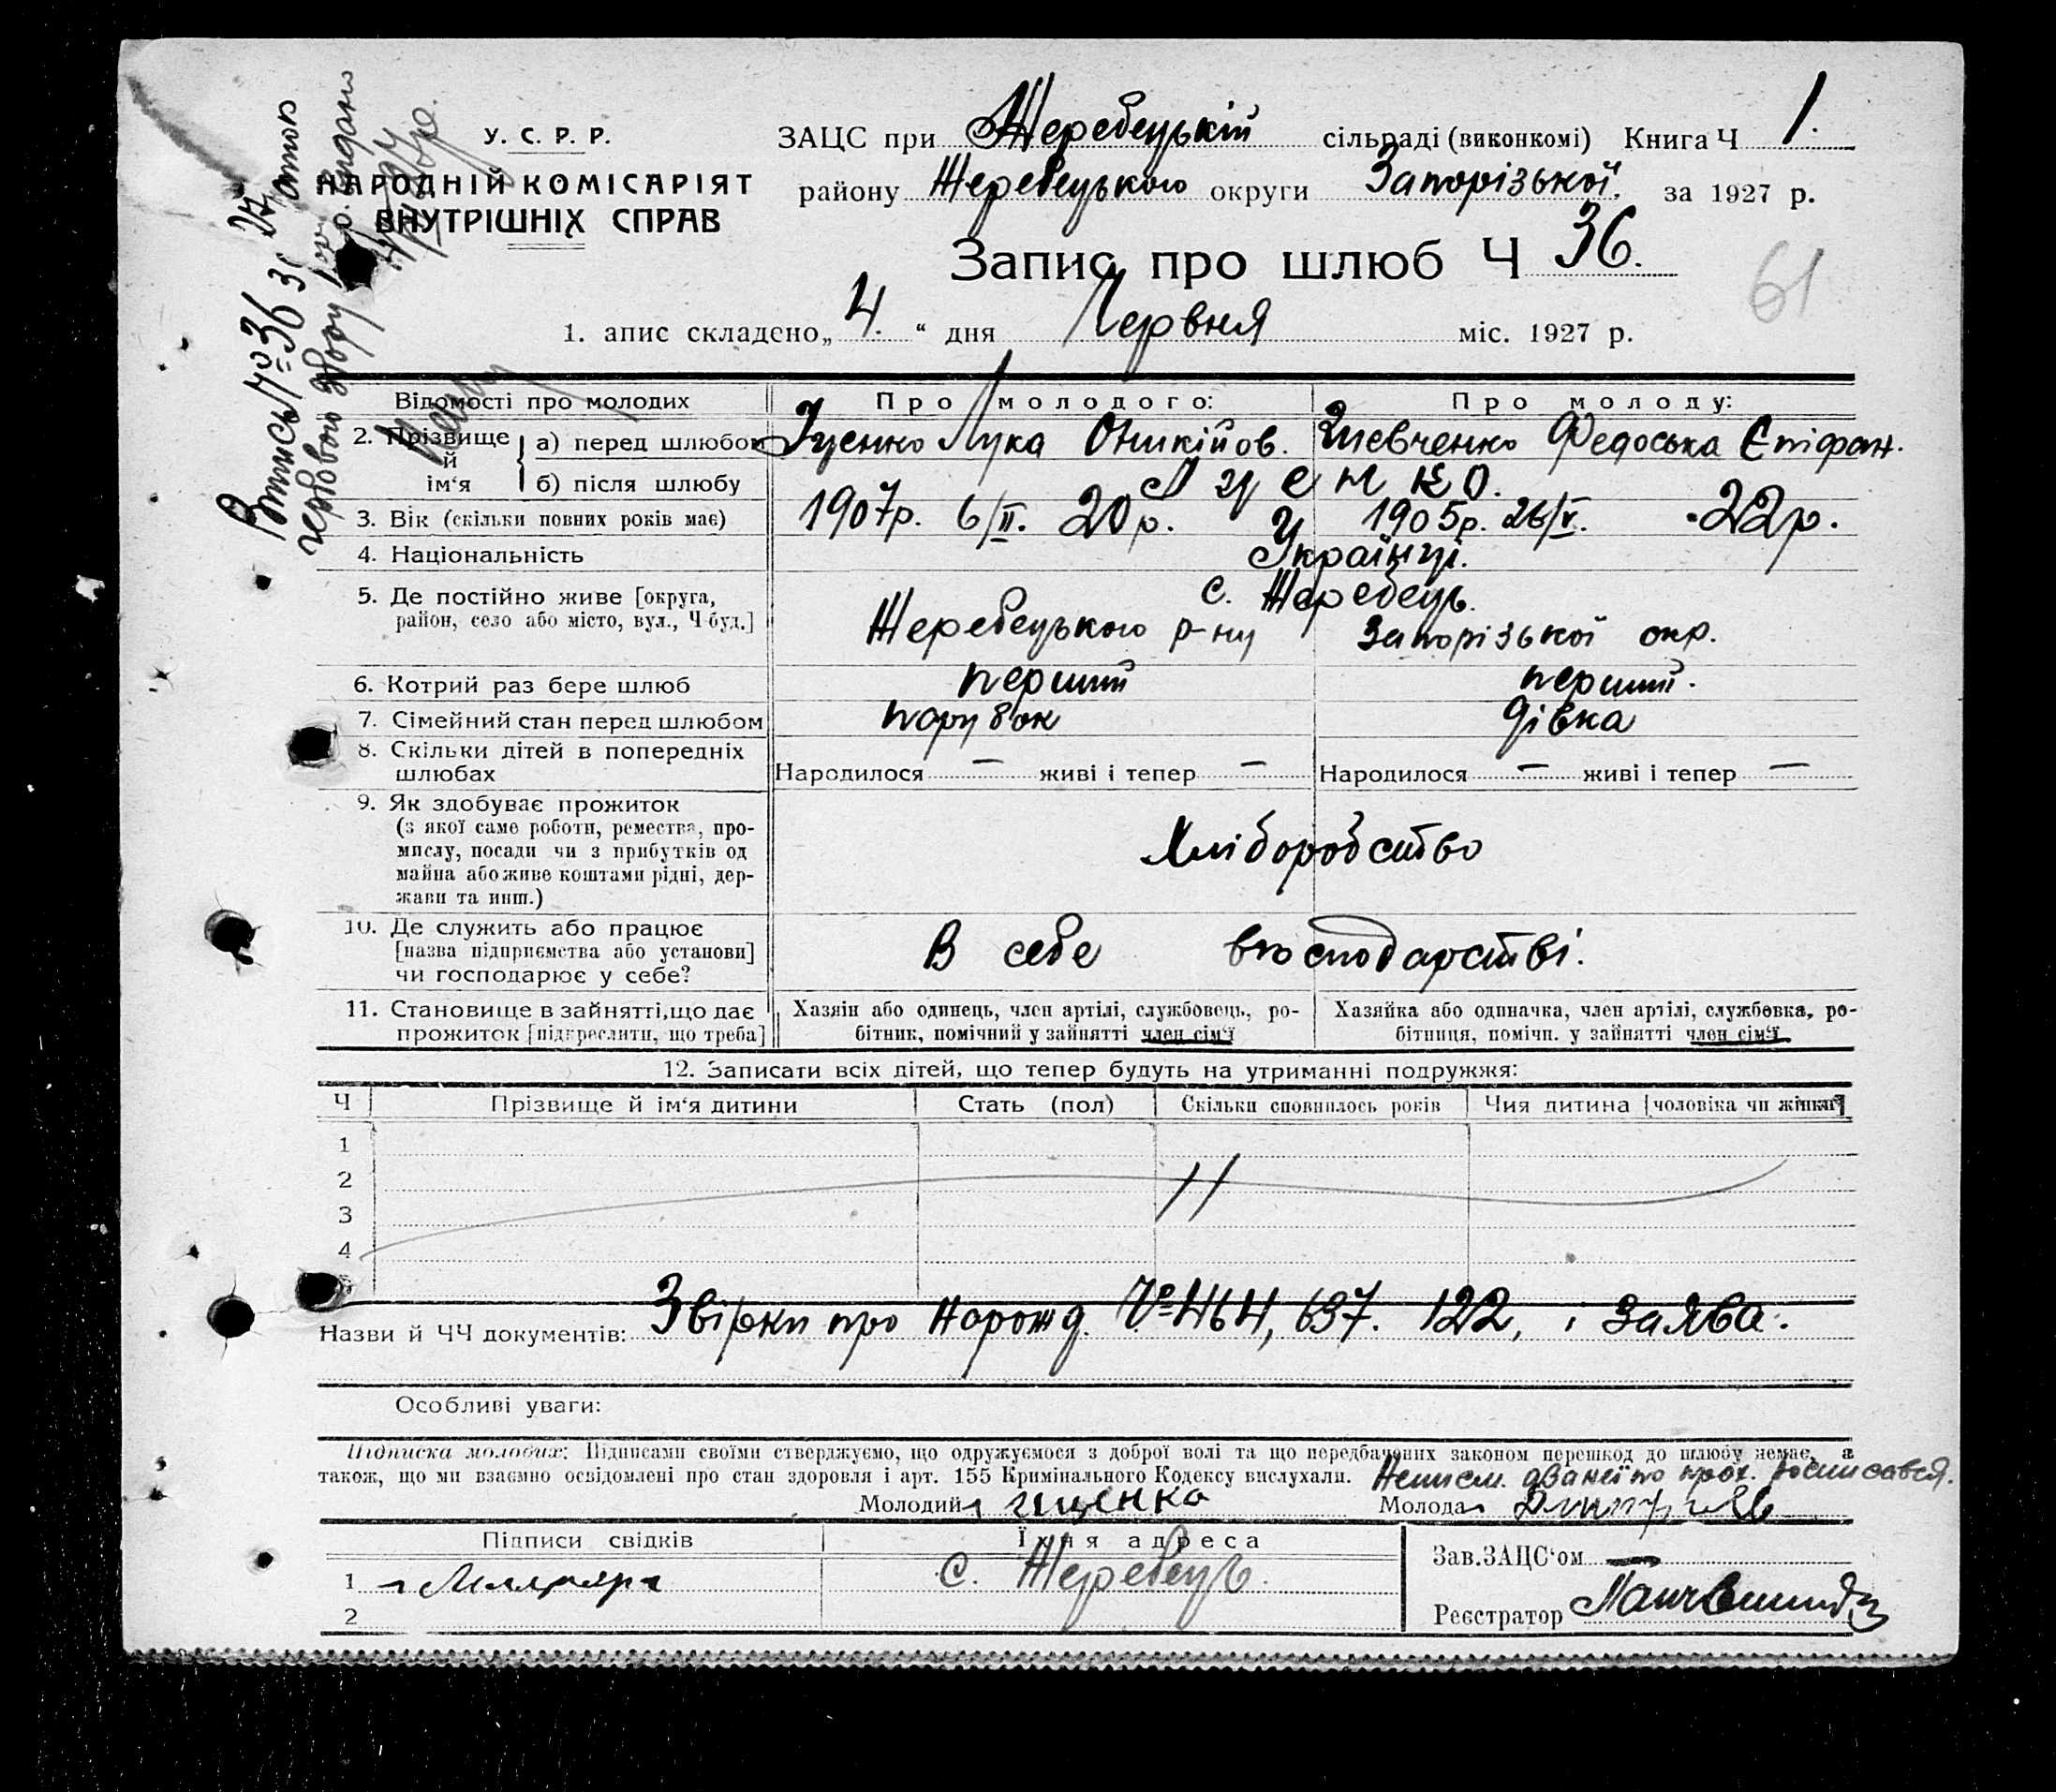 У. С. Р. Р.
НАРОДНІЙ КОМІСАРІЯТ
ВНУТРІШНІХ СПРАВ
ЗАЦС при Жеребецькій сільраді (виконкомі) Книга Ч 1.
району Жеребецького округи Запорізької. за 1927 р.
Запис про шлюб Ч 36.
61
1. апис складено „4." дня Червня міс. 1927 р.
Відомості про молодих Про молодого: Про молоду:
2. Прізвище й ім'я
а) перед шлюбом Іценко Лука Оникійов. Шевченко Федоська Єпіфан.
б) після шлюбу Іценко.
3. Вік (скільки повних років має) 1907р. 6/II. 20 р. 1905р. 26/V. 22р.
4. Національність Українці.
5. Де постійно живе [округа, с. Жеребець.
район, село або місто, вул., Ч буд.] Жеребецького р-ну Запорізької окр.
6. Котрий раз бере шлюб перший перший.
7. Сімейний стан перед шлюбом парубок дівка
8. Скільки дітей в попередніх
шлюбах Народилося — живі і тепер — Народилося — живі і тепер —
9. Як здобуває прожиток
(з якої саме роботи, ремества, про-
мислу, посади чи з прибутків од Хліборобство
майна або живе коштами рідні, дер-
жави та инш.)
10. Де служить або працює
[назва підприємства або установи] В себе вгосподарстві.
чи господарює у себе?
11. Становище в зайнятті, що дає Хазяін або одинець, член артілі, службовець, ро- Хазяйка або одиначка, член артілі, службовка, ро-
прожиток [підкреслити, що треба] бітник, помічний у зайнятті член сім'ї бітниця, помічн. у зайнятті член сім'ї
12. Записати всіх дітей, що тепер будуть на утриманні подружжя:
Ч Прізвище й ім'я дитини Стать (пол) Скільки сповнилось років Чия дитина [чоловіка чи жінки]
1
2
3
4
Назви й ЧЧ документів: Звірки про народж. № 464, 697. 122, і заява.
Особливі уваги:
Підписка молодих: Підписами своїми стверджуємо, що одружуємося з доброї волі та що передбачених законом перешкод до шлюбу немає, а
також, що ми взаємно освідомлені про стан здоровля і арт. 155 Кримінального Кодексу вислухали. Неписм.
Молодий Іщенко Молода
Підписи свідків Їхня адреса Зав.ЗАЦС'ом —
1 с. Жеребець.
2 Реєстратор
Випись № 36